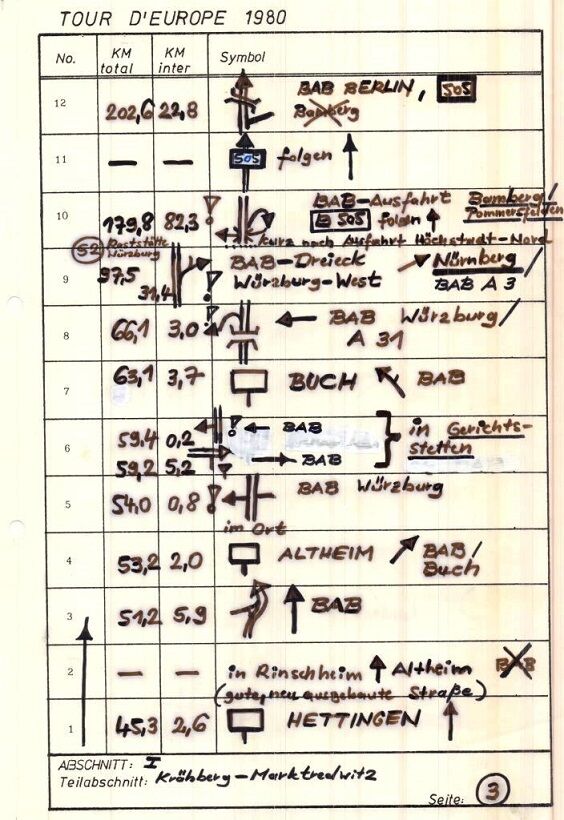 TOUR D'EUROPE 1980
No. KM total KM inter Symbol
12 202,6 22,8 BAB BERLIN, 505
Bamberg
11 — — 505 folgen
10 179,8 82,3 ! BAB-Ausfahrt Bamberg/
B 505 folgen Pommersfelden
kurz nach Ausfahrt Höchstadt-Nord
52 Raststätte Würzburg
9 97,5 31,4 ! BAB-Dreieck Nürnberg/
Würzburg-West BAB A 3
8 66,1 3,0 ! BAB Würzburg/
A 31
7 63,1 3,7 BUCH BAB
6 59,4 0,2 ! BAB in Gerichts-
59,2 5,2 BAB stetten
5 54,0 0,8 ! BAB Würzburg
im Ort
4 53,2 2,0 ALTHEIM BAB/
Buch
3 51,2 5,9 BAB
2 — — in Rinschheim Altheim BAB
(gute, neu ausgebaute Straße)
1 45,3 2,6 HETTINGEN
ABSCHNITT: I
Teilabschnitt: Krähberg-Marktredwitz
Seite: 3